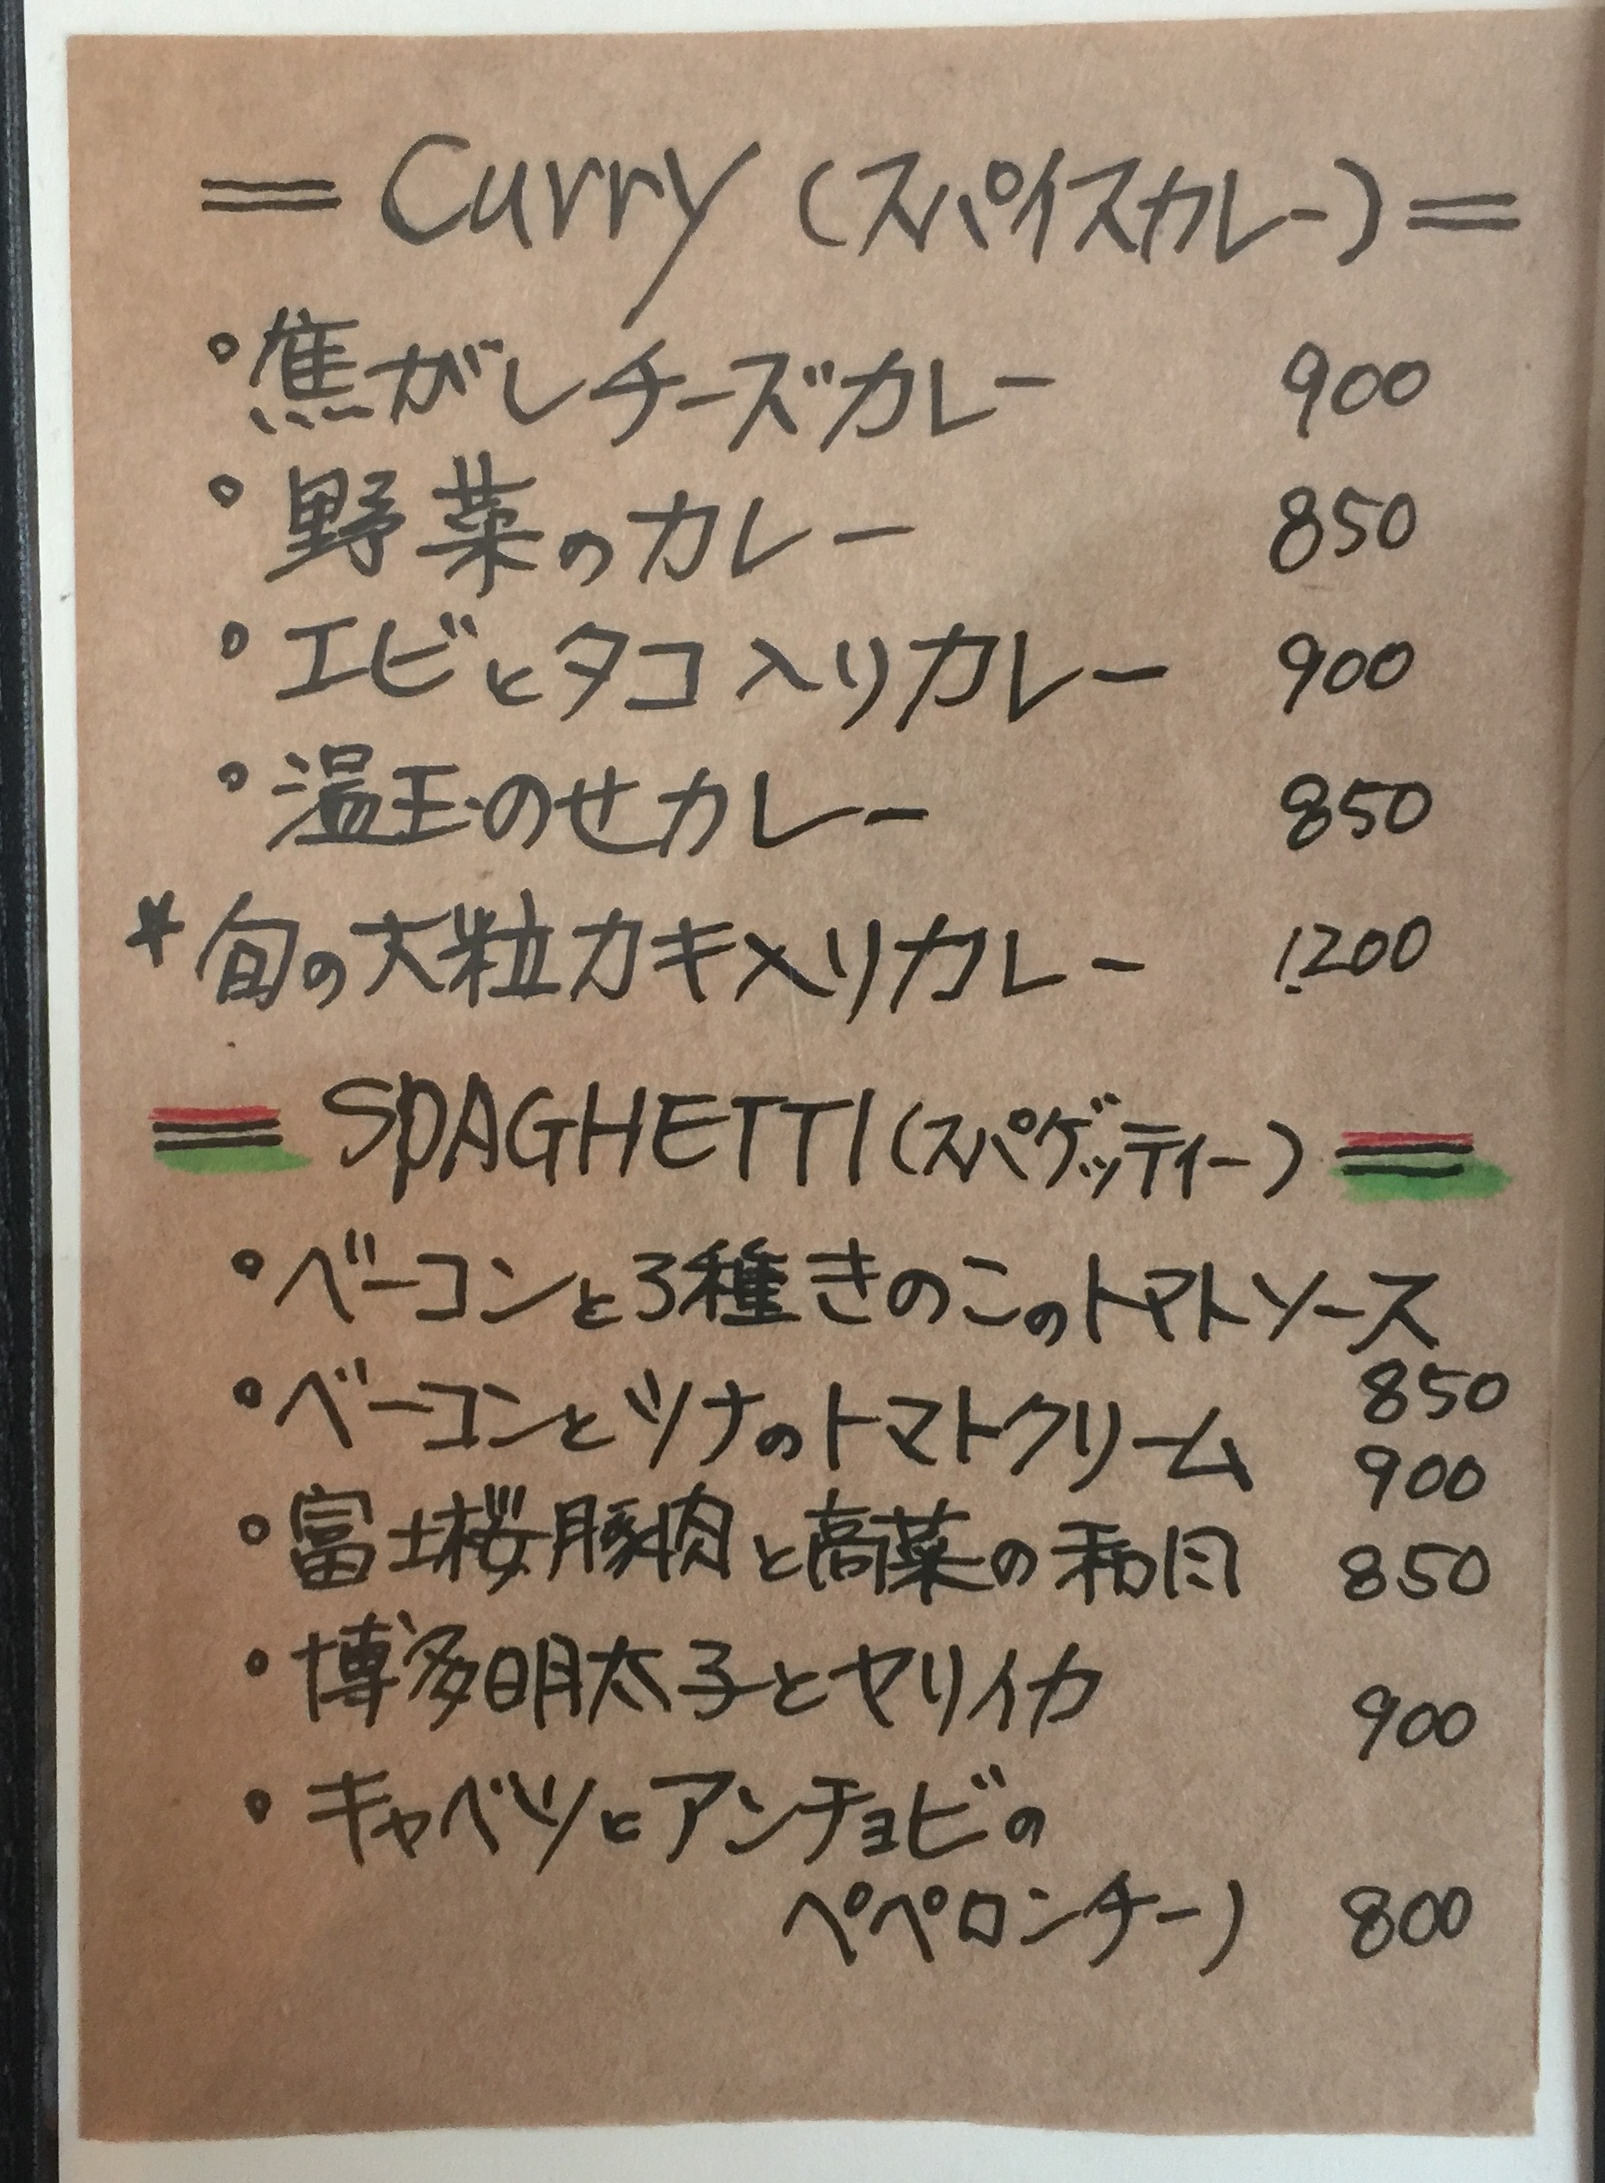 = Curry (スパイスカレー) =
・焦がしチーズカレー 900
・野菜のカレー 850
・エビとタコ入りカレー 900
・温玉のせカレー 850
* 旬の大粒カキ入りカレー 1200
= SPAGHETTI (スパゲッティー) =
・ベーコンと3種きのこのトマトソース
850
・ベーコンとツナのトマトクリーム 900
・富士桜豚肉と高菜の和風 850
・博多明太子とヤリイカ 900
・キャベツとアンチョビの
ペペロンチーノ 800